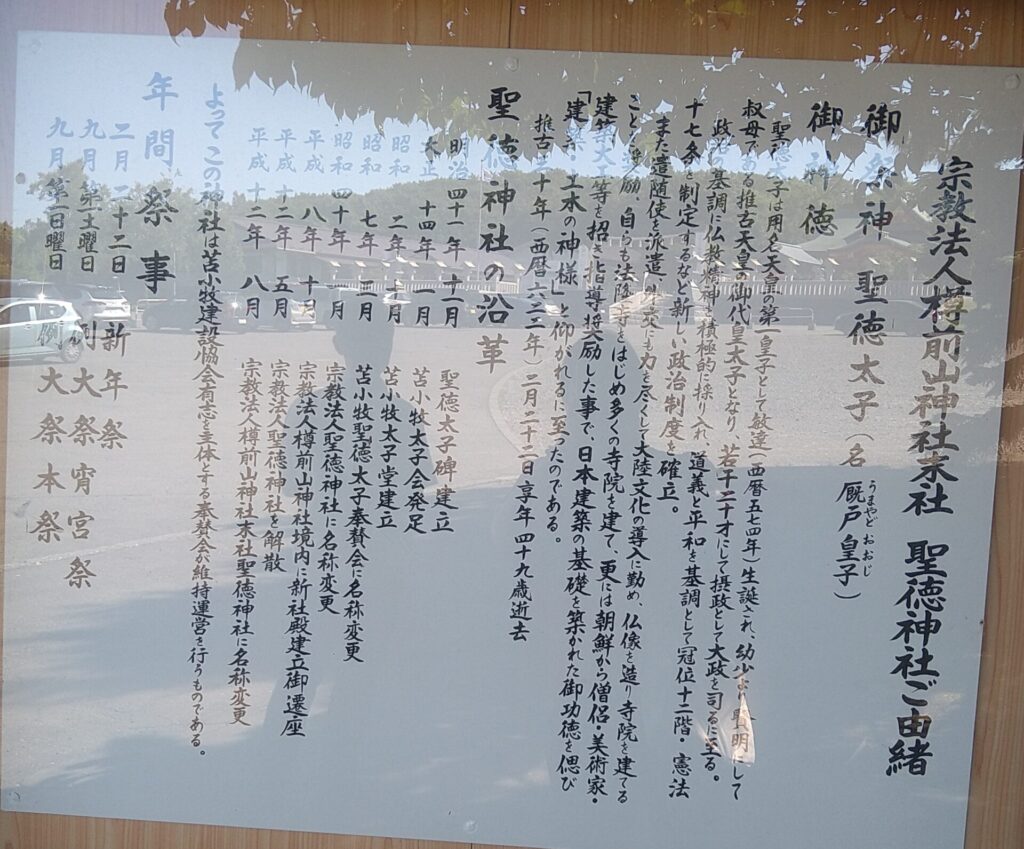 宗教法人樽前山神社末社 聖徳神社ご由緒
御祭神 聖徳太子（名 厩戸皇子）
うまやど おおじ
御神徳
聖徳太子は用名天皇の第一皇子として敏達（西暦五七四年）生誕され、幼少より賢明にして
叔母である推古天皇の御代皇太子となり、若干二十才にして摂政として大政を司るに至る。
政治の基調に仏教精神を積極的に採り入れ、道義と平和を基調として冠位十二階・憲法
十七条を制定するなど新しい政治制度を確立。
また遣随使を派遣、外交にも力を尽くして大陸文化の導入に勤め、仏像を造り寺院を建てる
ことを奨励、自らも法隆寺をはじめ多くの寺院を建て、更には朝鮮から僧侶・美術家・
建築大工等を招き指導奨励した事で、日本建築の基礎を築かれた御功徳を偲び
「建築・土木の神様」と仰がれるに至ったのである。
推古三十年（西暦六二二年）二月二十二日享年四十九歳逝去
聖徳神社の沿革
明治四十一年 十二月 聖徳太子碑建立
大正十四年 一月 苫小牧太子会発足
昭和二年 十一月 苫小牧太子堂建立
昭和七年 二月 苫小牧聖徳太子奉賛会に名称変更
昭和四十年 一月 宗教法人聖徳神社に名称変更
平成八年 十月 宗教法人樽前山神社境内に新社殿建立御遷座
平成十二年 五月 宗教法人聖徳神社を解散
平成十二年 八月 宗教法人樽前山神社末社聖徳神社に名称変更
よってこの神社は苫小牧建設協会有志を主体とする奉賛会が維持運営を行うものである。
年間祭事
二月二十二日 新年祭
九月第一土曜日 例大祭宵宮祭
九月第一日曜日 例大祭本祭